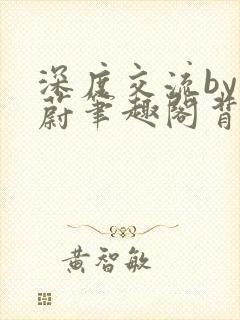 深度交流by
蔚笔趣阁背
黄智敏